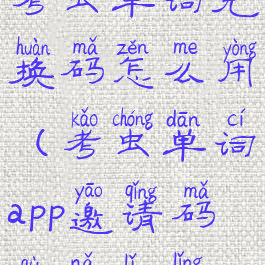 考虫单词兑
huàn mǎ zěn me yòng
换码怎么用
kǎo chóng dān cí
(考虫单词
yāo qǐng mǎ
app邀请码
nǎ lǐ lǐng